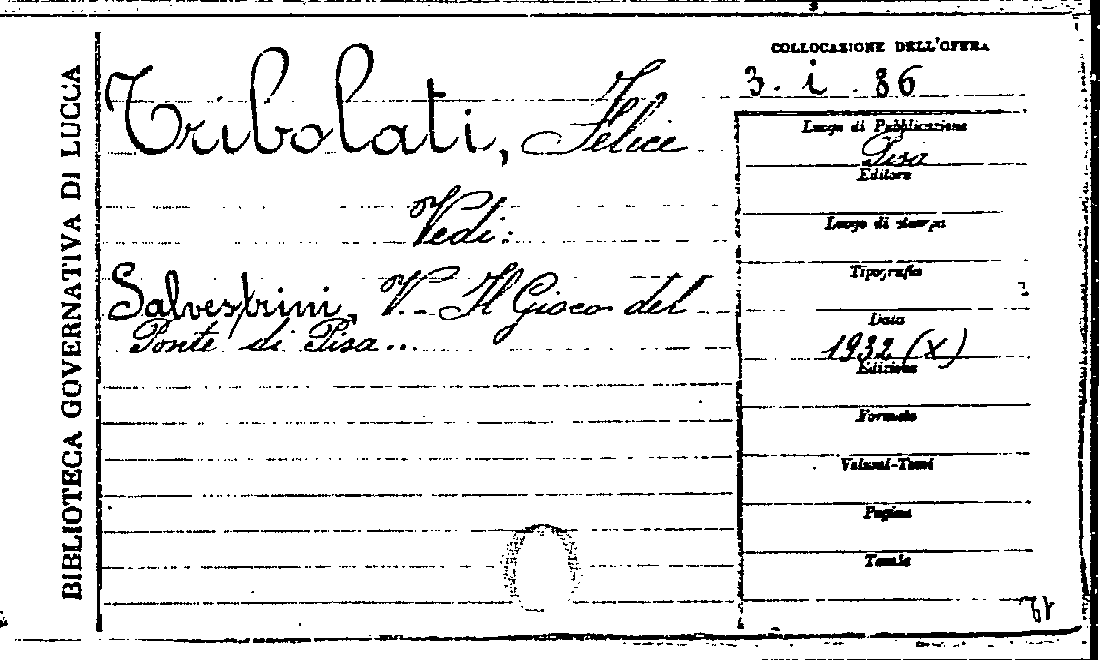 BIBLIOTECA GOVERNATIVA DI LUCCA
Tribolati, Felice
Vedi:
Salvestrini, V. Il Gioco del
Ponte di Pisa...
COLLOCAZIONE DELL'OPERA
3. i. 86
Luogo di Pubblicazione
Pisa
Editore
Luogo di stampa
Tipografia
Data
1932 (X)
Edizione
Formato
Volumi-Tomi
Pagine
Tavole